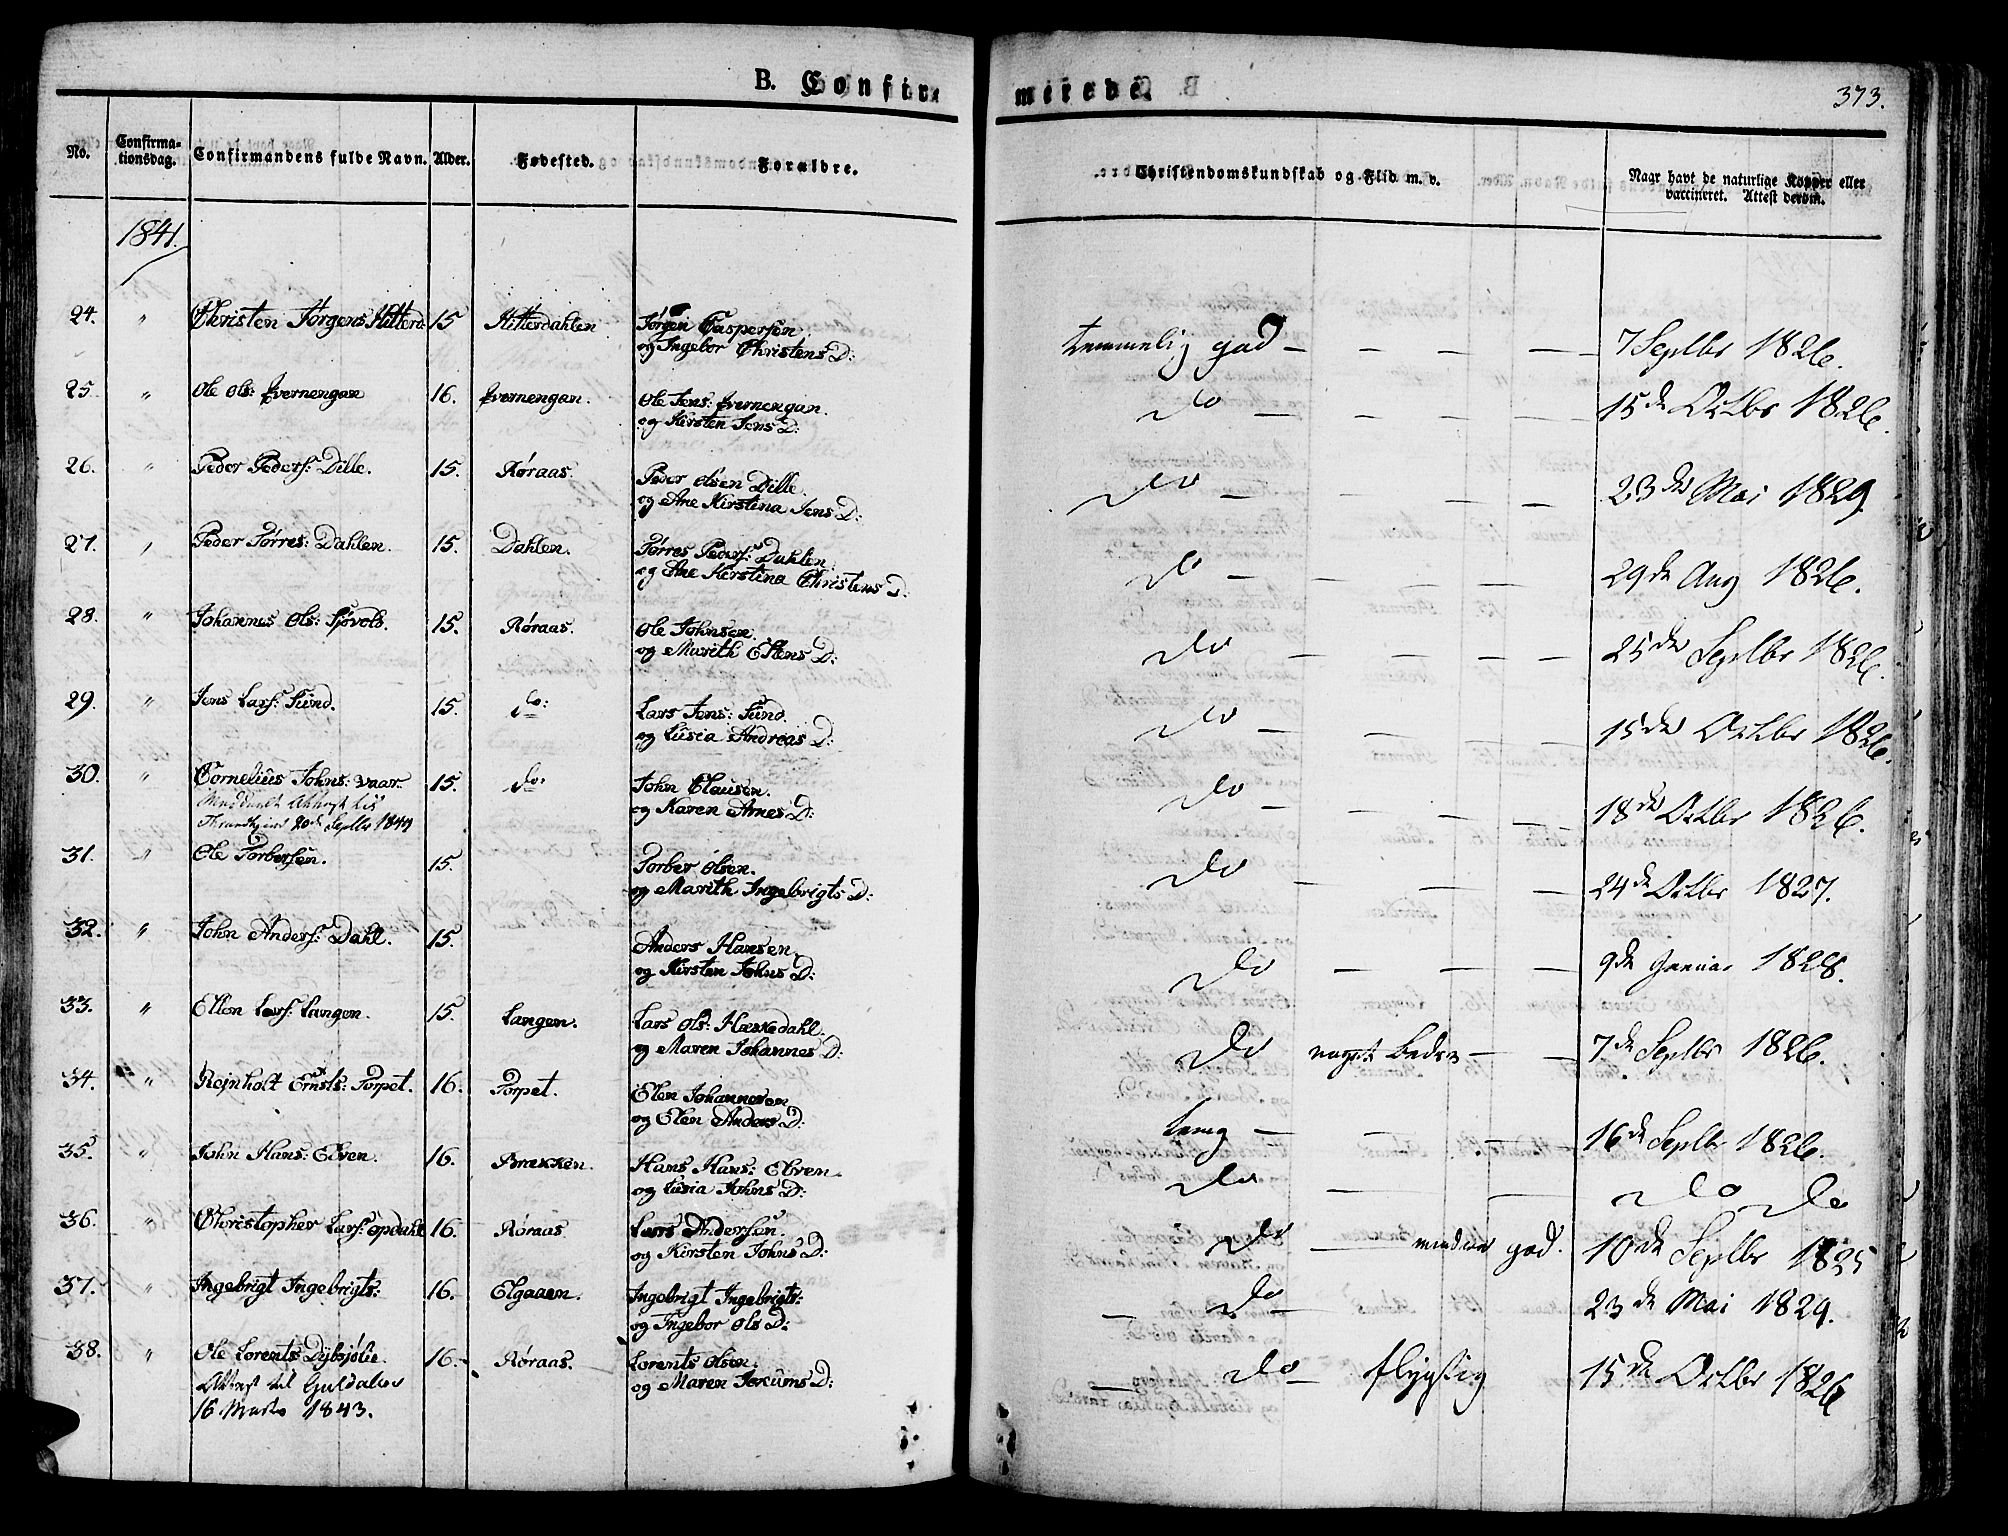 B. Confirmerede.
373.
No. Confirmationsdag. Confirmandens fulde Navn. Alder. Fødested. Forældre. Christendomskundskab og Flid m. v. Naar havt de naturlige Kopper eller vaccineret. Attest derom.
1841.
24. " Christen Jørgens Hitterd 15 Hitterdahlen Jørgen Caspersen temmelig god — — — — 7 Septbr 1826.
og Ingebor Christens D:
25. " Ole Ols: Hvernengan 16. Hvernengan. Ole Jens: Hvernengan. Do — — — — 15de Octbr 1826.
og Kirsten Jens D:
26. " Peder Peders: Dille. 15. Røraas. Peder Olsen Dille. Do — — — — 23de Mai 1829.
og Ane Kirstina Jens D:
27. " Peder Torres: Dahlen. 15. Dahlen. Torres Peders: Dahlen. Do — — — — 29de Aug 1826.
og Ane Kirstina Christens D:
28. " Johannes Ols: Sjøvols. 15. Røraas. Ole Johnsen. Do — — — — 25de Septbr 1826.
og Marith Estens D:
29. " Jens Lars: Sund. 15. do: Lars Jens: Sund. Do — — — — 15de Octbr 1826.
og Lusia Andreas D:
30. " Cornelius Johns: Vaar. 15. do: John Clausen. Do — — — — 18de Octbr 1826.
og Karen Arnes D:
Meddeelt Attest til
Throndhjem 20de Septbr 1844
31. " Ole Torbersen. 15. Torber Olsen. Do — — — 24de Octbr 1827.
og Marith Ingebrigts D:
32. " John Anders: Dahl. 15. Anders Hansen. Do — — — — 9de Januar 1828.
og Kirsten Johns D:
33. " Ellen Lars: Langen. 15. Langen. Lars Ols: Hæskedahl. Do noget bedre — — 7de Septbr 1826.
og Maren Johannes D:
34. " Reinholt Ernsts: Torpet. 16. Torpet. Elen Johannesen temg — — — 16de Septbr 1826.
og Elen Anders D:
35. " John Hans: Elven. 16. Brækken. Hans Hans: Elven. Do — — Do Do
og Lusia Johns D:
36. " Christopher Lars: Opdahl 16. Røraas. Lars Andersen. Do — mindre god. 10de Septbr 1825
og Kirsten Johns D:
37. " Ingebrigt Ingebrigts: 16. Elgaaen. Ingebrigt Ingebrigts: — Do — 23de Mai 1829.
og Ingebor Ols D:
38. " Ole Lorents Dybsjølie. 16. Røraas. Lorents Olsen. — Do — flygtig 15de Octbr 1826
og Maren Joxums D:
Attest til Guldalen
16 Marts 1843.